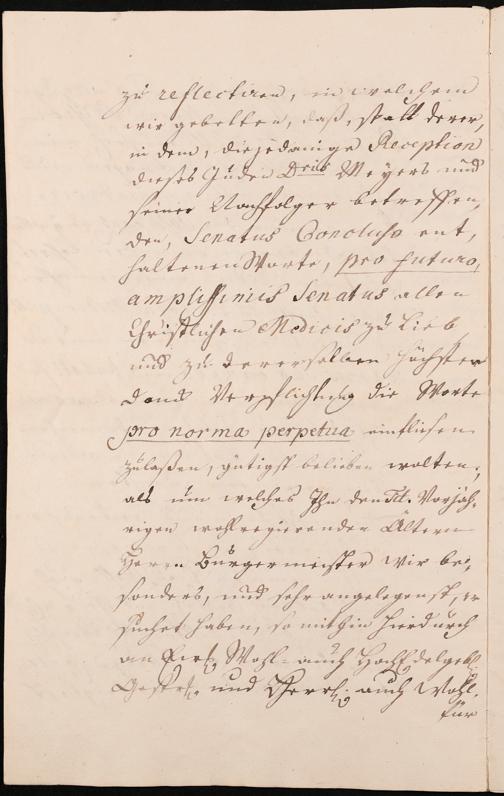 zu reflectiren, in welchem
wir gebetten, daß, statt derer,
in dem, die jedanige Reception
dieses Juden Dris Meyers und
seiner Nachfolger betreffen,
den, Senatus Concluso ent,
haltenen Worte, pro futuro,
amplissimis Senatus allen
Christlichen Medicis zu Lieb
und zu dererselben höchsten
Danck Verpflichtung die Worte
pro norma perpetua einflißen
zulaßen, gütigst belieben wolten,
als um welches Ihn den Tit: Vorjäh,
rigen wohlregierenden Ältern
Herrn Bürgermeister wir be,
sonders, und sehr angelegenst, er
suchet haben, so mithin hierdurch
an Wohl- auch HochEdelgeb.
Gestr. und Herrl. auch Wohl-
für